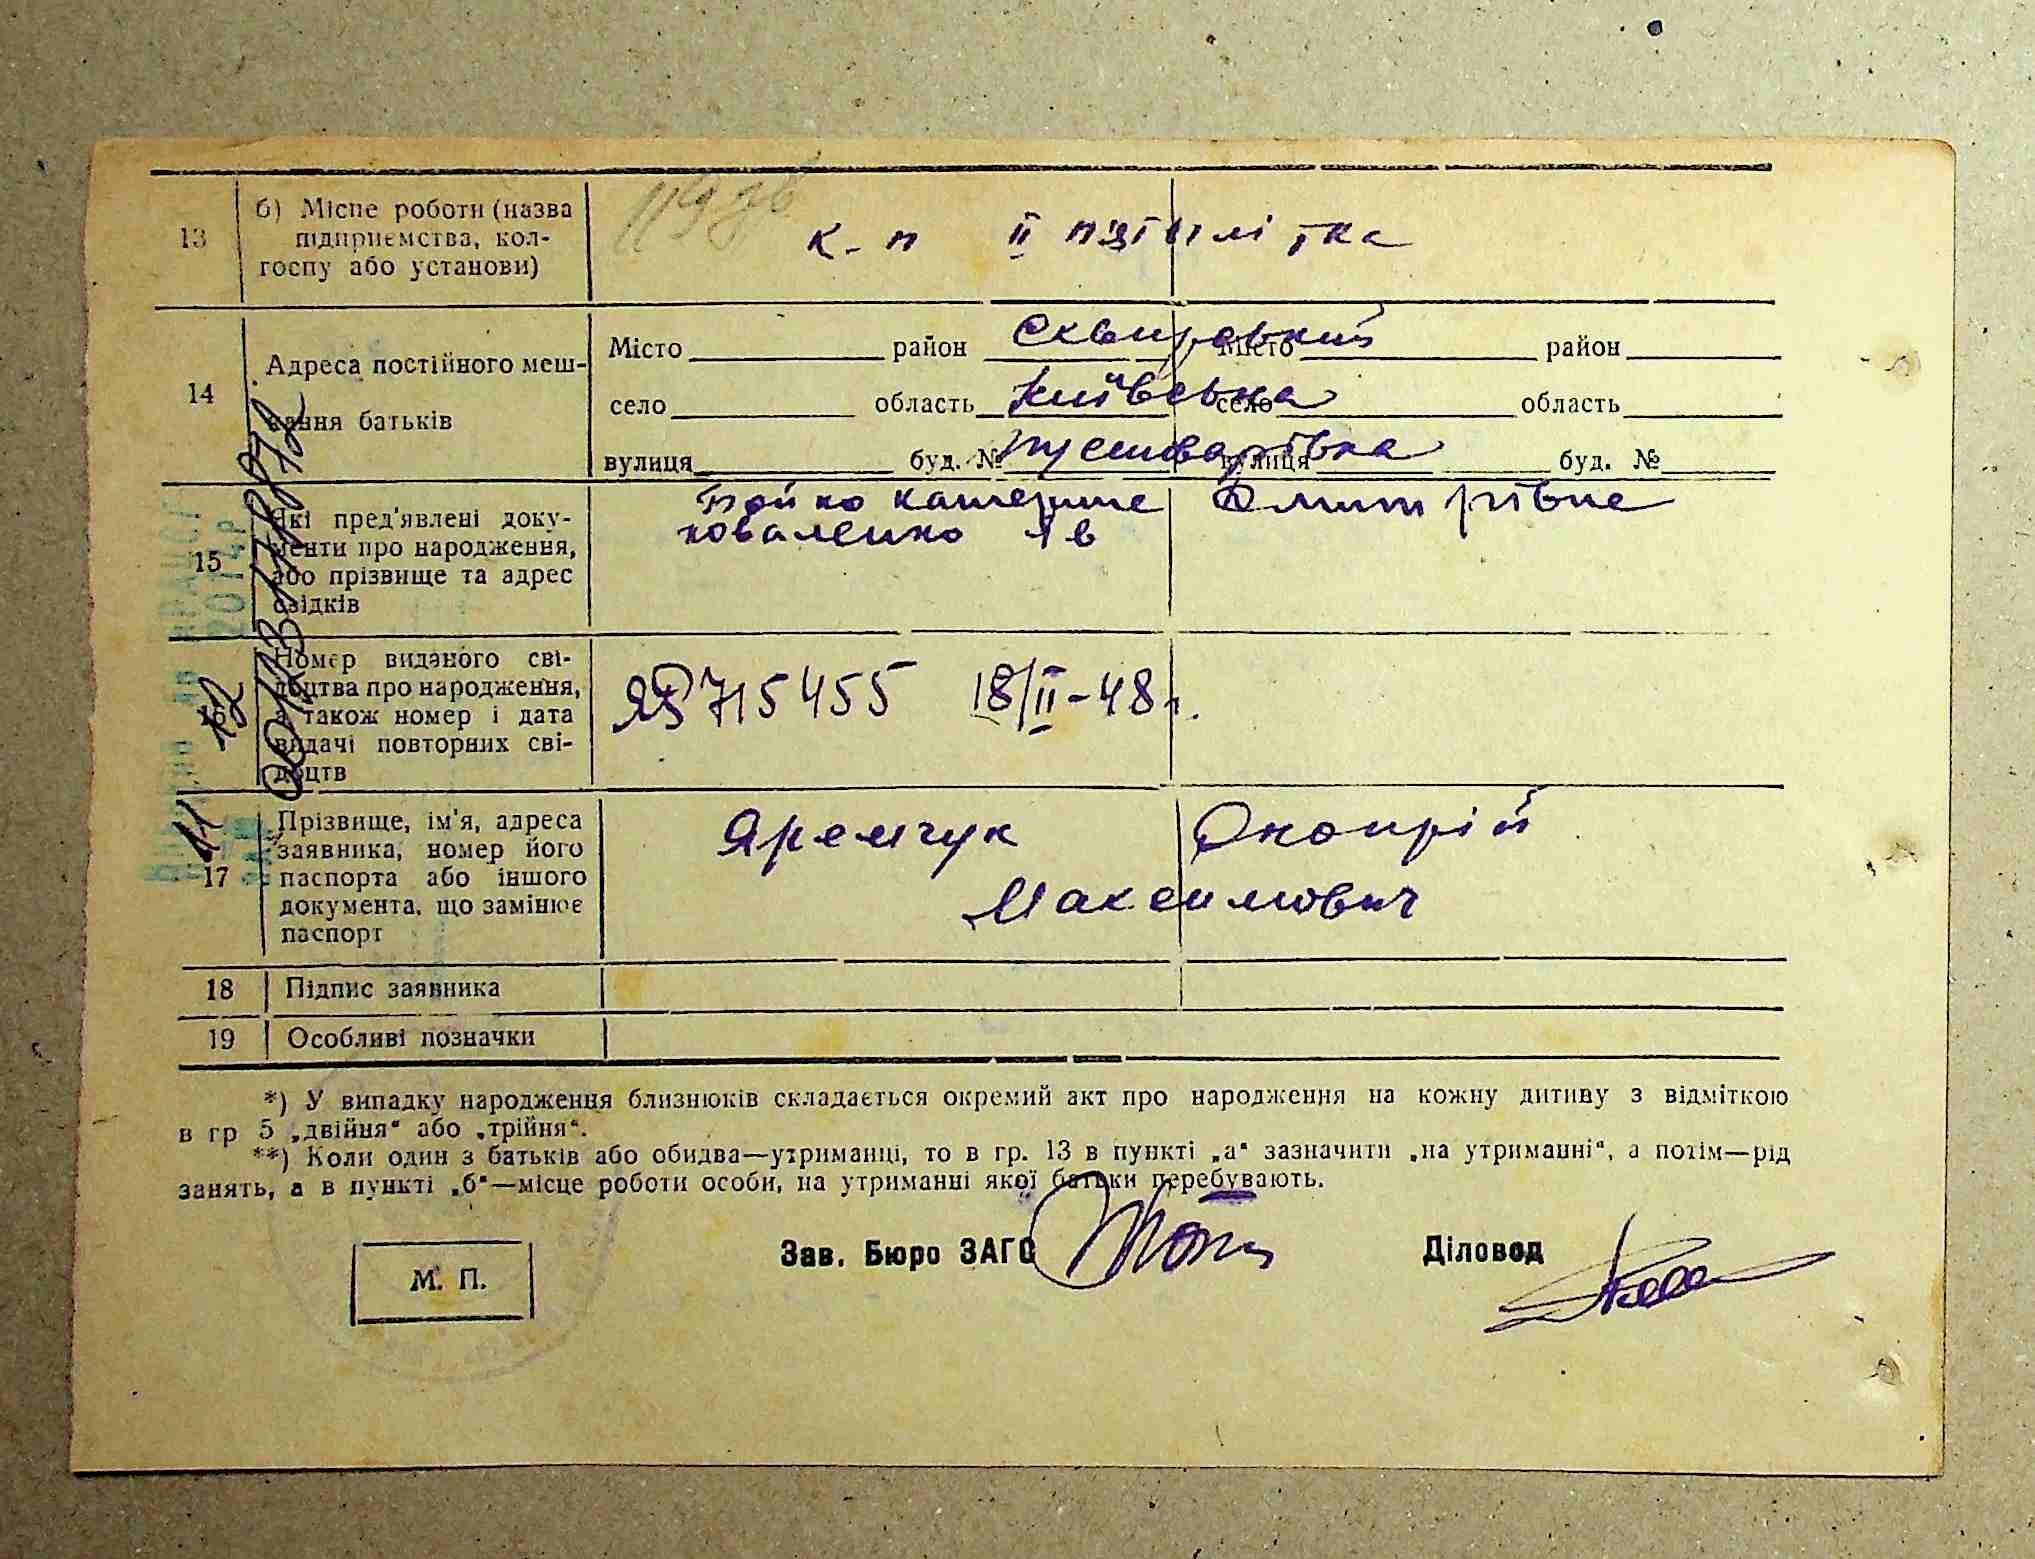 13
б) Місце роботи (назва
підприємства, кол-
госпу або установи)
к-п ІІ пятилітка
14
Адреса постійного меш-
кання батьків
Місто район Сквирський Місто район
село область Київська село область
вулиця буд. № вулиця буд. №
15
Які пред'явлені доку-
менти про народження,
або прізвище та адрес
свідків
Бойко катерине Дмитрівне
коваленко Я в
16
Номер виданого сві-
доцтва про народження,
а також номер і дата
видачі повторних сві-
доцтв
715455 18/ІІ-48 г.
17
Прізвище, ім'я, адреса
заявника, номер його
паспорта або іншого
документа, що замінює
паспорт
Яремчук
Максимович
18 Підпис заявника
19 Особливі позначки
*) У випадку народження близнюків складається окремий акт про народження на кожну дитину з відміткою
в гр 5 „двійня“ або „трійня“.
**) Коли один з батьків або обидва—утриманці, то в гр. 13 в пункті „а“ зазначити „на утриманні“, а потім—рід
занять, а в пункті „б“—місце роботи особи, на утриманні якої батьки перебувають.
Зав. Бюро ЗАГС Діловод
М. П.